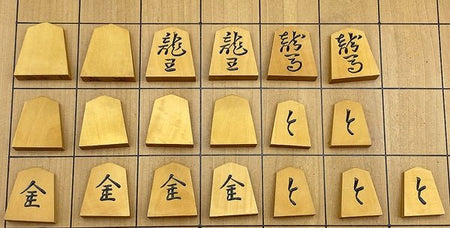 龍王 龍王 龍馬 龍馬
と と
金 金 金 金 と と と